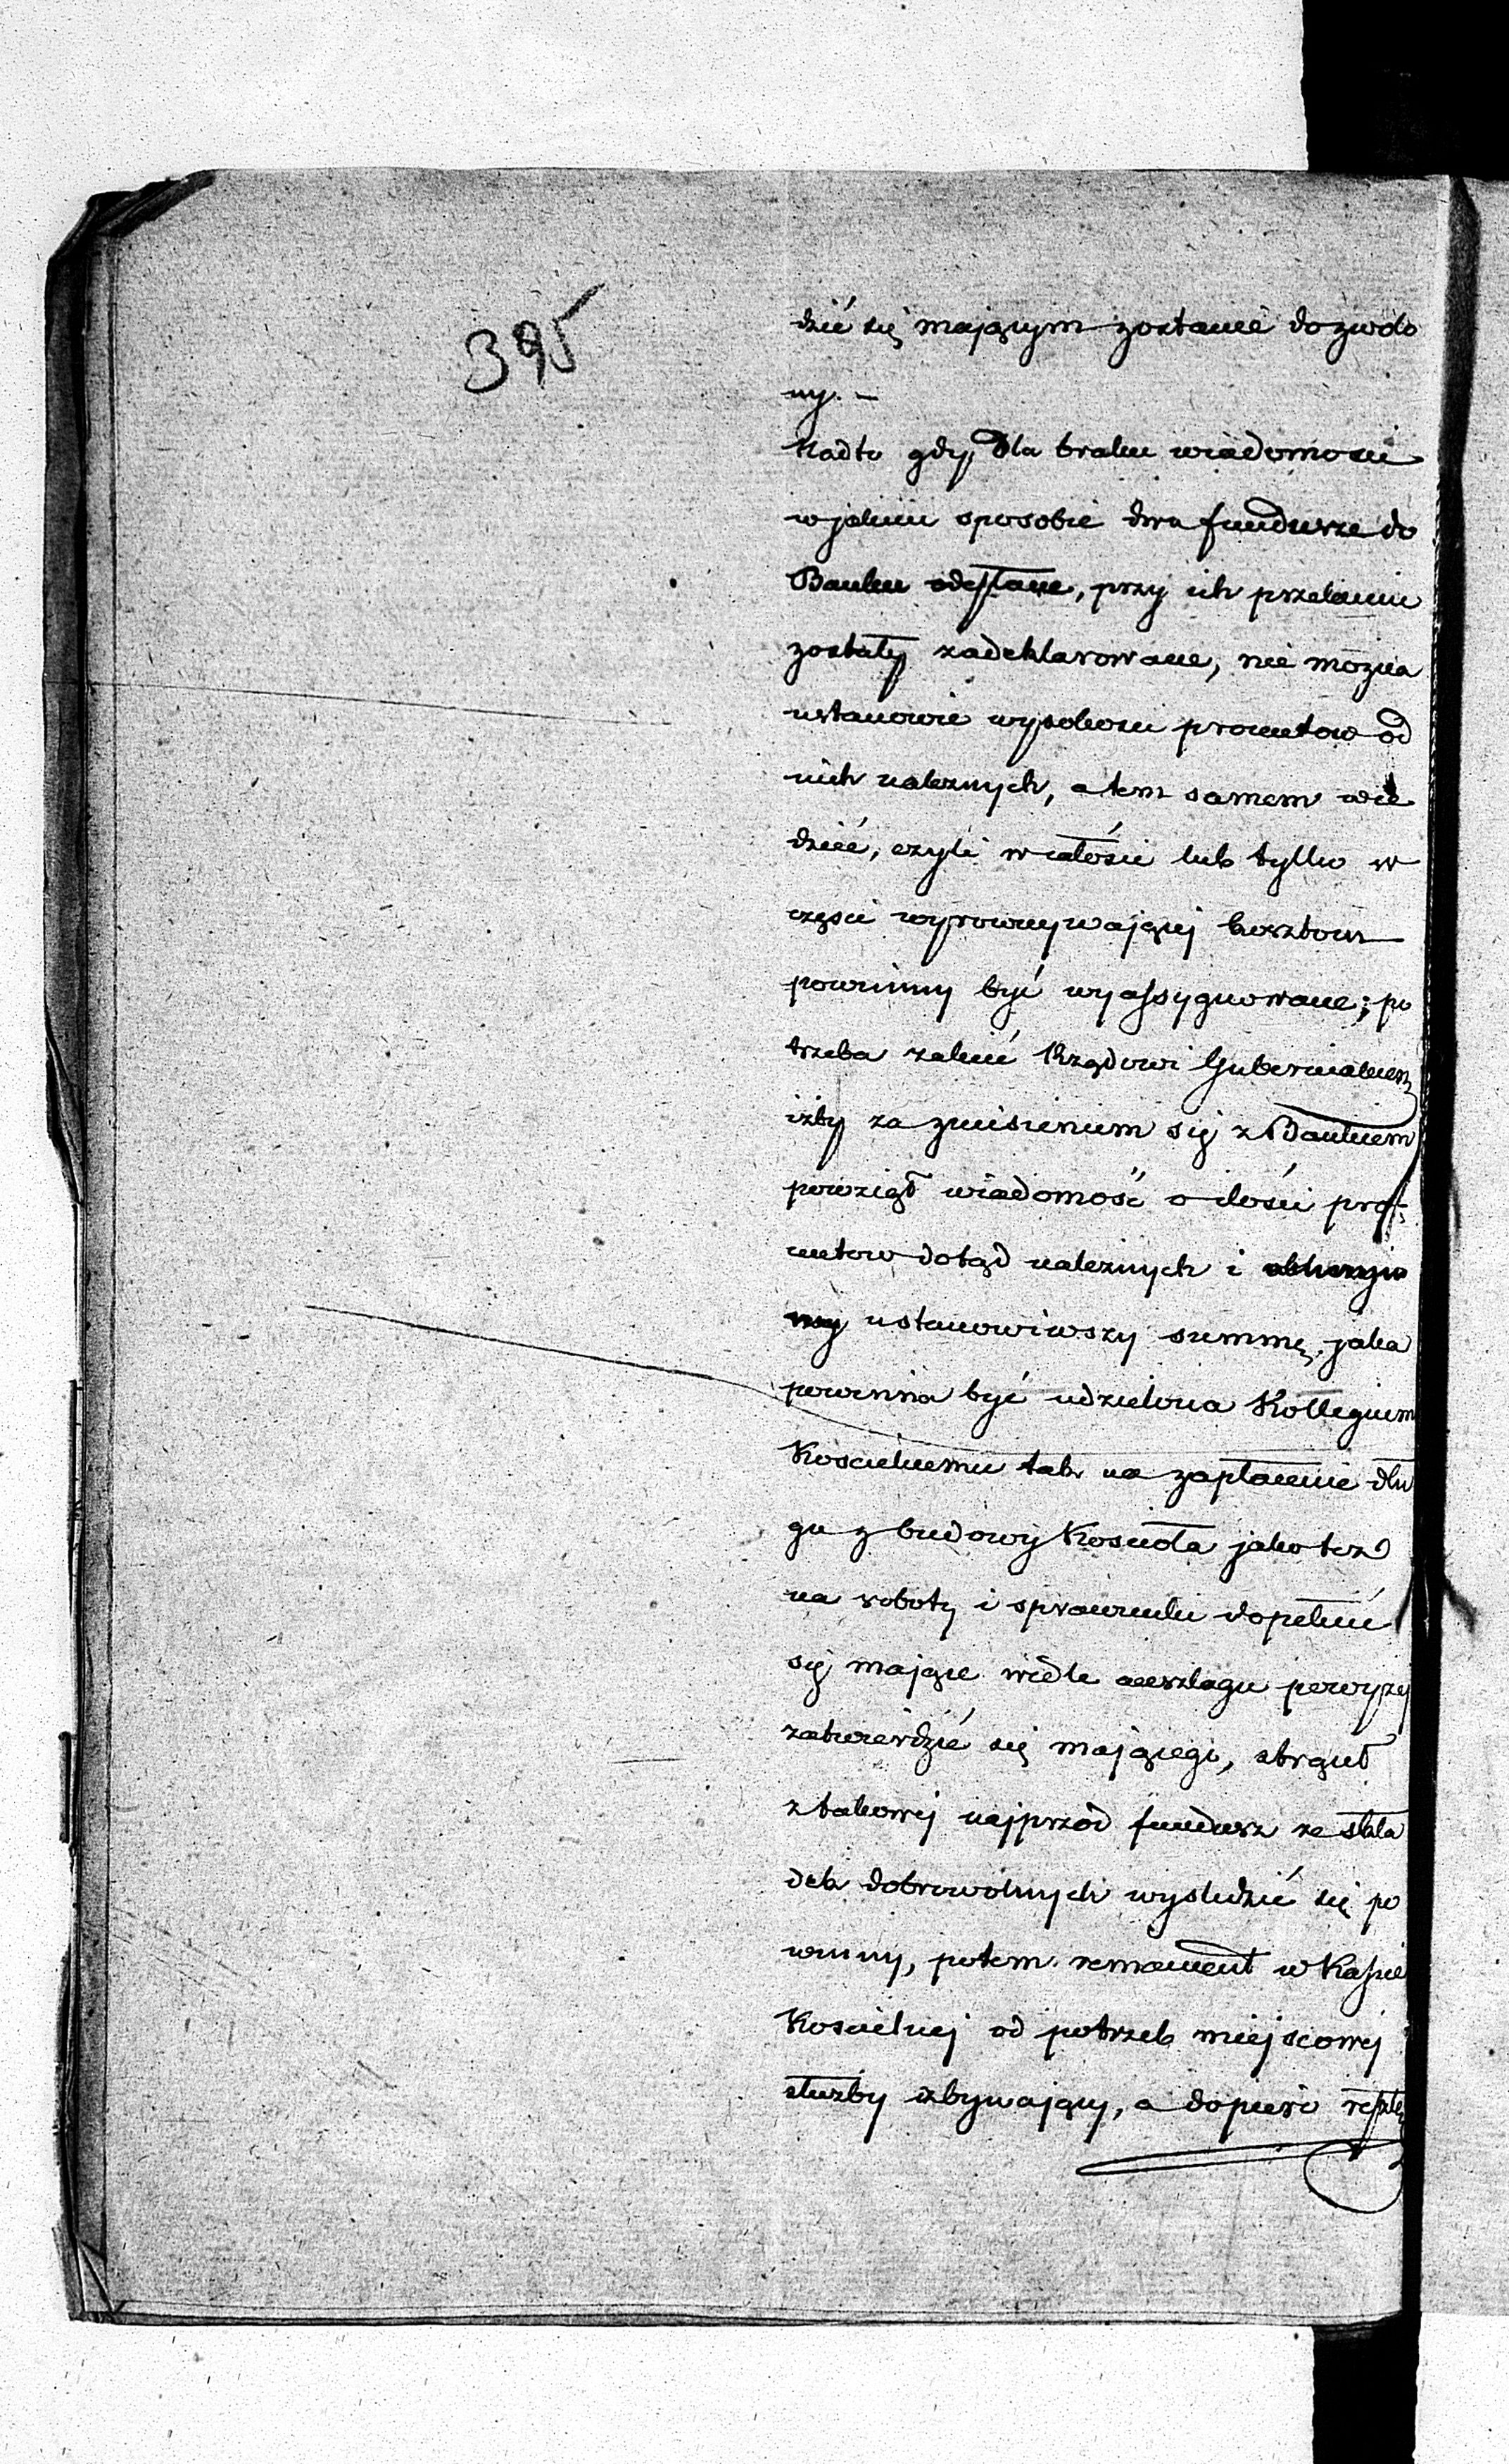 395
dzić się mającym zostanie dozwolo
ny. –
Nadto gdy, dla braku wiadomości
w jakim sposobie dwa fundusze do
Banku odesłane, przy ich przelaniu
zostały zadeklarowane, nie można
ustanowić wysokości procentow od
nich należnych, a tem samem wie
dzieć, czyli w całości lub tylko w
części wyrownywającej kosztom
powinny być wyassygnowane; po
trzeba zalecić Rządowi Gubernialnem
iżby za zniesieniem się z Bankiem
powziął wiadomość o ilości pro-
centow dotąd należnych i
ustanowiwszy summę jaka
powinna być udzielona Kollegium
Kościelnemu tak na zapłacenie dłu
gu z budowy Kościoła jako też
na roboty i sprawunki dopełnić
się mające wedle anszlagu powyżej
zatwierdzić się mającego, strącił
z takowej najprzód fundusz ze skła
dek dobrowolnych wyśledzić się po
winny, potem remanent w Kassie
Kościelnej od potrzeb miejscowej
służby zbywający, a dopiero resztę